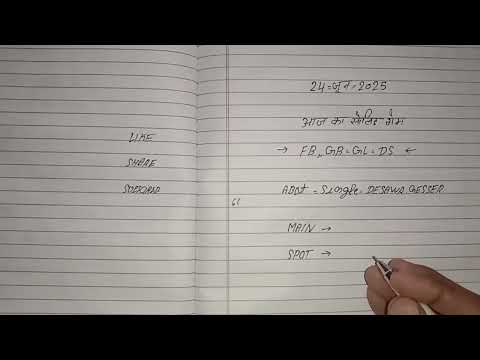 LIKE
SHARE
24-जून-2025
आज का सॉलिड गेम
→ FB, GB = GL = DS ←
= Single = DESAWR, GESSER
MAIN →
SPOT →